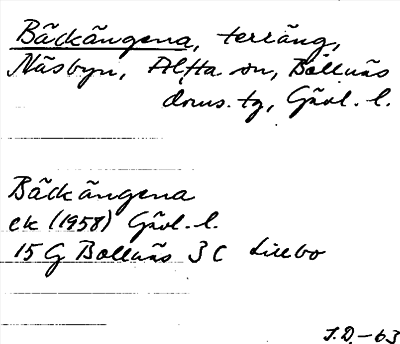 Bäckängena, terräng,
Näsbyn, Alfta sn, Bollnäs
doms. tg, Gävl. l.
Bäckängena
ek (1958) Gävl. l.
15 G Bollnäs 3 C Lillbo
J.D. - 63